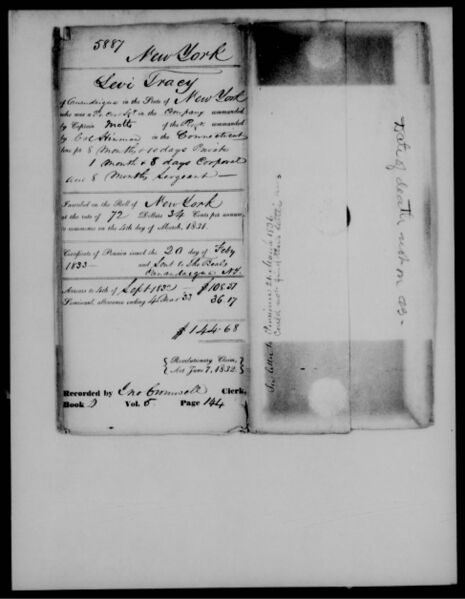 5887
New York
Levi Tracy
of Canandaigua in the State of New York
who was a in the Company commanded
by Captain of the Regt commanded
by Col in the Connecticut
line for 8 Months & 10 days Private
1 month & 8 days Corporal
and 8 Months Sergeant
Inscribed on the Roll of New York
at the rate of 72 Dollars 34 Cents per annum,
to commence on the 4th day of March, 1831.
Certificate of Pension issued the 20 day of Feby
1833 and Sent to
Canandaigua N.Y.
Arrears to 4th of Sept 1832 $108.51
Semi-anl. allowance ending 4 Mar 33 36.17
$144.68
{ Revolutionary Claim, }
{ Act June 7, 1832. }
Recorded by Clerk,
Book D Vol. 6 Page 144
Date of death not on